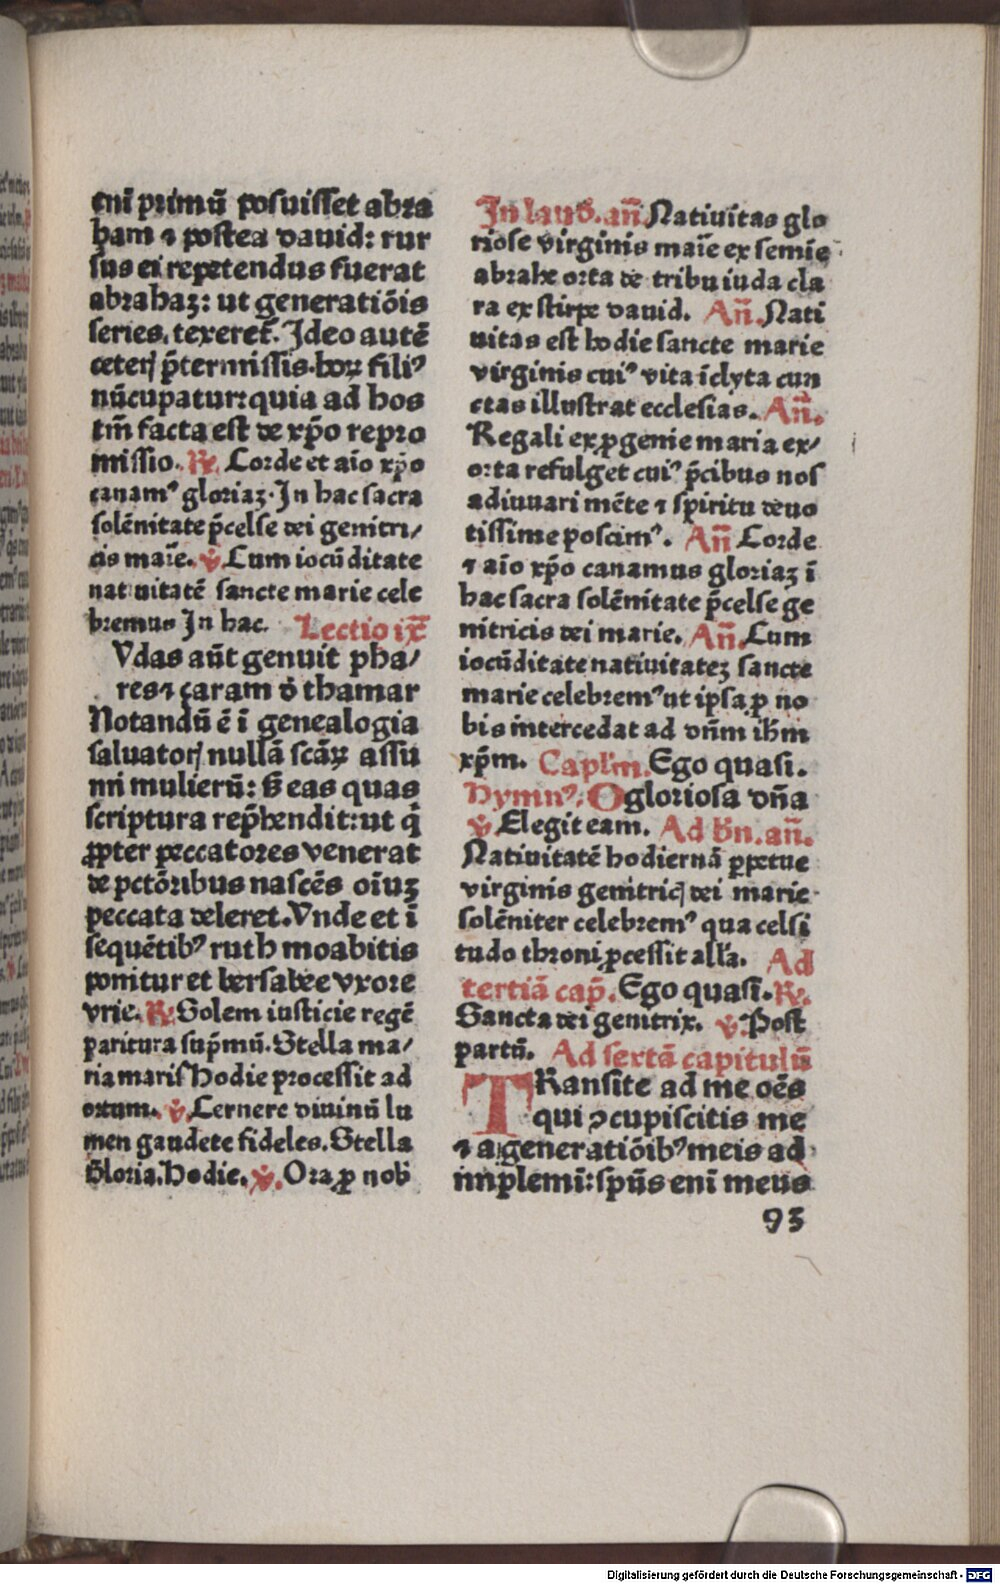 cnī primū posuisset abra
ham ⁊ postea dauid: rur
sus ei repetendus fuerat
abrahaꝫ: ut generatiōis
series, texeret̄. Ideo autē
ceterꝭ p̄termissis.hoꝝ filiꝰ
nūcupatur:quia ad hos
tm̄ facta est de xp̄o repro
missio. ℟. Corde et aīo xp̄o
canamꝰ gloriaꝫ. In hac sacra
solēnitate p̄celse dei genitri/
cis mar̄ie. ℣. Cum iocūditate
natiuitatē sancte marie cele
bremus In hac. Lectio ix̄
Vdas aūt genuit pha/
res⁊ ꝫaram ō thamar
Notandū ē ī genealogia
saluatorꝭ nullā scāꝝ assu
mi mulierū: s̄ eas quas
scriptura rep̄hendit:ut q̄
ꝓpter peccatores venerat
de pctōribus nascēs oīuꝫ
peccata deleret.Vnde et ī
sequētibꝰ ruth moabitis
ponitur et bersabee vxore
vrie. ℟. Solem iusticie regē
paritura sup̄mū. Stella ma/
ria maris hodie processit ad
ortum. ℣. Cernere diuinū lu
men gaudete fideles. Stella
Gloria. Hodie. ℣. Ora ꝓ nobꝭ
In laud̄. an̄. Natiuitas glo
riose virginis mar̄ie ex semīe
abrahe orta de tribu iuda cla
ra ex stirpe dauid. An̄. Nati
uitas est hodie sancte marie
virginis cuiꝰ vita īclyta cun
ctas illustrat ecclesias. An̄.
Regali ex ꝓgenie maria ex/
orta refulget cuiꝰ p̄cibus nos
adiuuari mēte ⁊ spiritu deuo
tissime poscimꝰ. An̄ Corde
⁊ aīo xp̄o canamus gloriaꝫ ī
hac sacra solēnitate p̄celse ge
nitricis dei marie. An̄. Cum
iocūditate natiuitateꝫ sancte
marie celebremꝰ ut ipsa ꝓ no
bis intercedat ad dn̄m ih̄m
xp̄m. Capl̄m. Ego quasi.
Hymnꝰ. O gloriosa dn̄a
℣. Elegit eam. Ad bn̄. an̄.
Natiuitatē hodiernā ꝑpetue
virginis genitricꝭ dei marie
solēniter celebremꝰ qua celsi
tudo throni ꝓcessit all̄a. Ad
tertiā cap̄. Ego quasi. ℟.
Sancta dei genitrix. ℣. Post
partū. Ad sextā capitulū
TRansite ad me oēs
qui ꝯcupiscitis me
⁊ a generatiōibꝰ meis ad
implemī:spūs enī meus
93
Digitalisierung gefördert durch die Deutsche Forschungsgemeinschaft - DFG